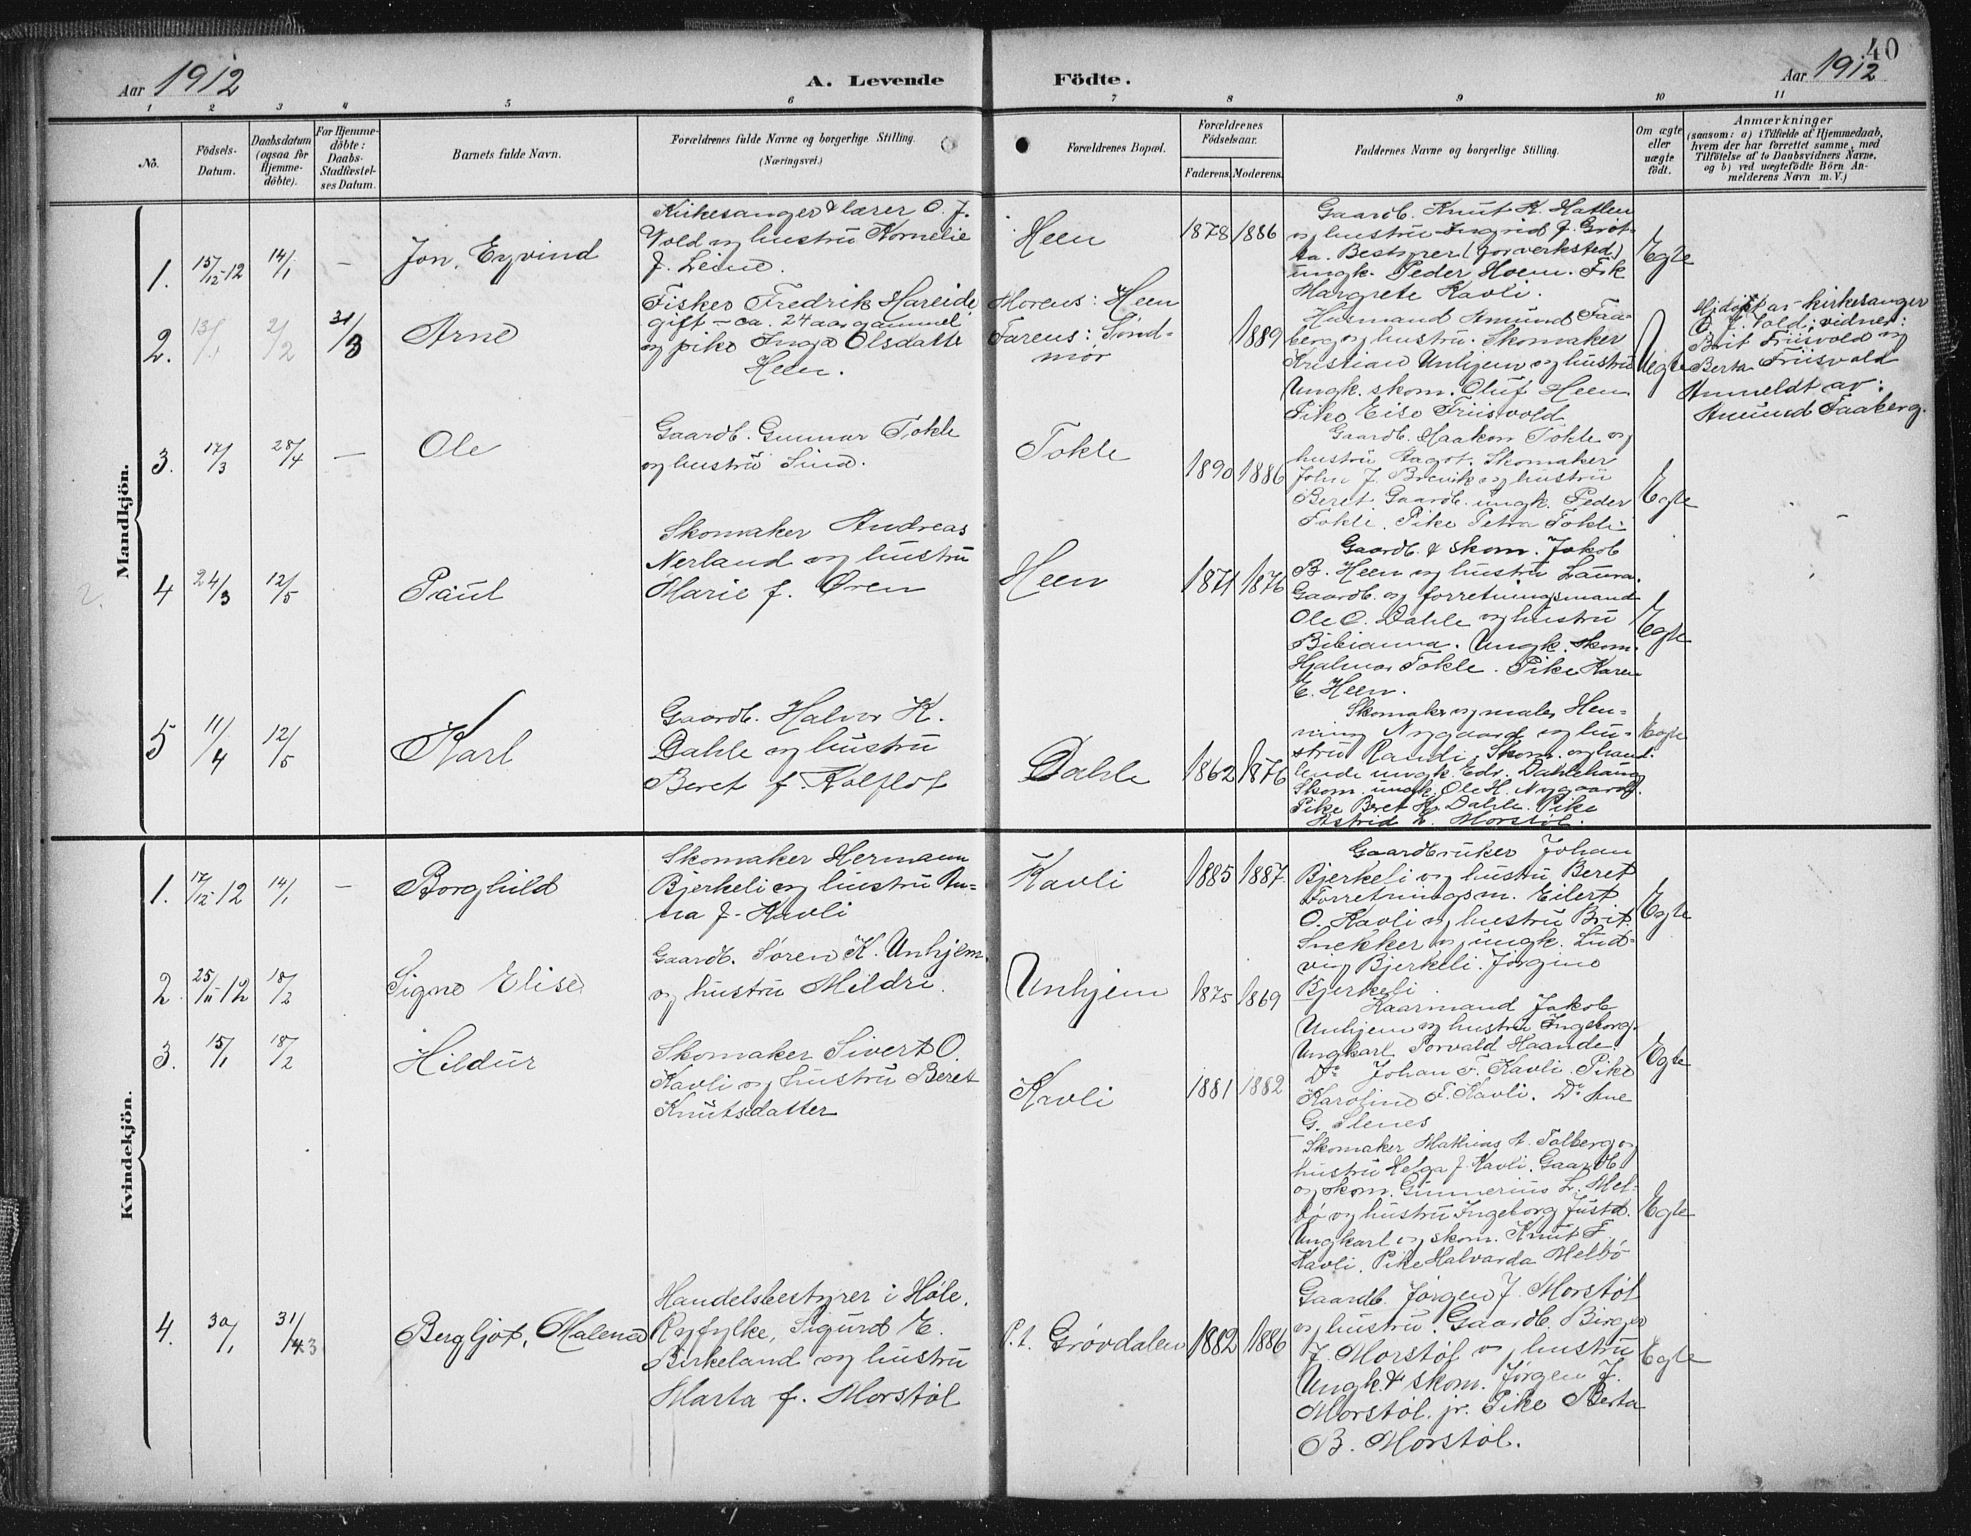 40
Aar 1912
A. Levende
Födte.
Aar 1912
1 2 3 4 5 6 7 8 9 10 11
No.
Födsels-
Datum.
Daabsdatum
(ogsaa for
Hjemme-
döbte).
For Hjemme-
döbte:
Daabs-
Stadfæstel-
ses Datum.
Barnets fulde Navn.
Forældrenes fulde Navne og borgerlige Stilling.
(Næringsvei.)
Forældrenes Bopæl.
Forældrenes
Födselsaar.
Faderens. Moderens.
Faddernes Navne og borgerlige Stilling.
Om ægte
eller
uægte
födt.
Anmærkninger
(saasom: a) i Tilfælde af Hjemmedaab,
hvem der har forrettet samme, med
Tilföielse af to Daabsvidners Navne,
og b) ved uægtefödte Börn An-
melderens Navn m. V.)
Mandkjön.
1. 15/12-12 14/1 — Jon, Eyvind
Kirkesanger & lærer O. J.
Vold og hustru Kornelie
f. Leine.
Heen
1878 1886
Gaardb. Knut K. Hatlen
og hustru Ingrid J. Grøt-
ta. Bestyrer (garverksted)
ungk. Peder Hoem. Frk
Margrete Kavli.
Egte
2. 13/1 2/2 31/3 Arne
Fisker Fredrik Hareide
gift – ca. 24 aar gammel
og pike Inga Olsdatte
Heen.
Morens: Heen
Farens: Sønd-
mør
1889
Husmand Amund Faa-
berg og hustru. Skomaker
Kristian Unhjem og hustru
Ungk. skom. Oluf Heen
Pike Eise Friisvold
Uegte
Hjdøpt av kirkesanger
O. J. Vold; vidner:
Brit Friisvold og
Berta Friisvold
Anmeldt av:
Amund Faaberg.
3. 17/3 28/4 — Ole
Gaardb. Gunnar Tokle
og hustru Sina.
Tokle
1890 1886
Gaardb. Haakon Tokle og
hustru Aagot. Skomaker
John J. Brevik og hustru
Beret. Gaardb. ungk. Peder
Tokle. Pike Petra Tokle.
Egte
4 24/3 12/5 Paul
Skomaker Andreas
Nerland og hustru
Marie f. Øren
Heen
1871 1876
Gaardb. & skom. Jakob
B. Heen og hustru Laura.
Gaardb. og forretningsmand
Ole O. Dahle og hustru
Bibianna. Ungk. skom.
Hjalmar Tokle. Pike Karen
E. Heen.
Egte
5 11/4 12/5 Karl
Gaardb. Halvor K.
Dahle og hustru
Beret f. Kolflot
Dahle
1862 1876
Skomaker og maler Hen-
ning Nygaard og hu-
stru Randi. Skom. og hand-
lende ungk. Edv. Dahlehaug
Skom. ungk. Ole H. Nygaard.
Pike Beret K. Dahle. Pike
Astrid L. Morstøl.
Egte
Kvindekjön.
1. 17/12 12 14/1 — Borghild
Skomaker Hermann
Bjerkeli og hustru An-
na f. Kavli
Kavli
1885 1887.
Gaardbruker Johan
Bjerkeli og hustru Beret
Forretningsm. Eilert
O. Kavli og hustru Brit.
Snekker og ungk. Lud-
vig Bjerkeli. Jørgine
Bjerkeli.
Egte
2 25/11 12 18/2 Signe Elise
Gaardb. Søren K. Unhjem.
og hustru Mildri.
Unhjem
1875 1869
Kaarmand Jakob
Unhjem og hustru Ingeborg.
Ungkarl Torvald Haande
Do Johan F. Kavli. Pike
Karoline F. Kavli. Do Ane
G. Slenes
Egte
3. 15/1 18/2 Hildur
Skomaker Sivert O.
Kavli og hustru Beret
Knutsdatter
Kavli
1881 1882
Skomaker Mathias A. Talberg og
hustru Helga f. Kavli. Gaardb
og skom. Gunnerius L. Mel-
bø og hustru Ingeborg Justd.
Ungkarl og skom. Knut F.
Kavli. Pike Halvarda Melbø
Egte
4. 30/1 31/3 Bergljot, Malena
Handelsbestyrer i Høle,
Ryfylke, Sigurd E.
Birkeland og hustru
Marta f. Morstøl
P.t. Grøvdalen
1882 1886
Gaardb. Jørgen J. Morstøl
og hustru. Gaardb. Birger
J. Morstøl og hustru
Ungk. & skom. Jørgen J.
Morstøl. jr. Pike Berta
B. Morstøl.
Egte